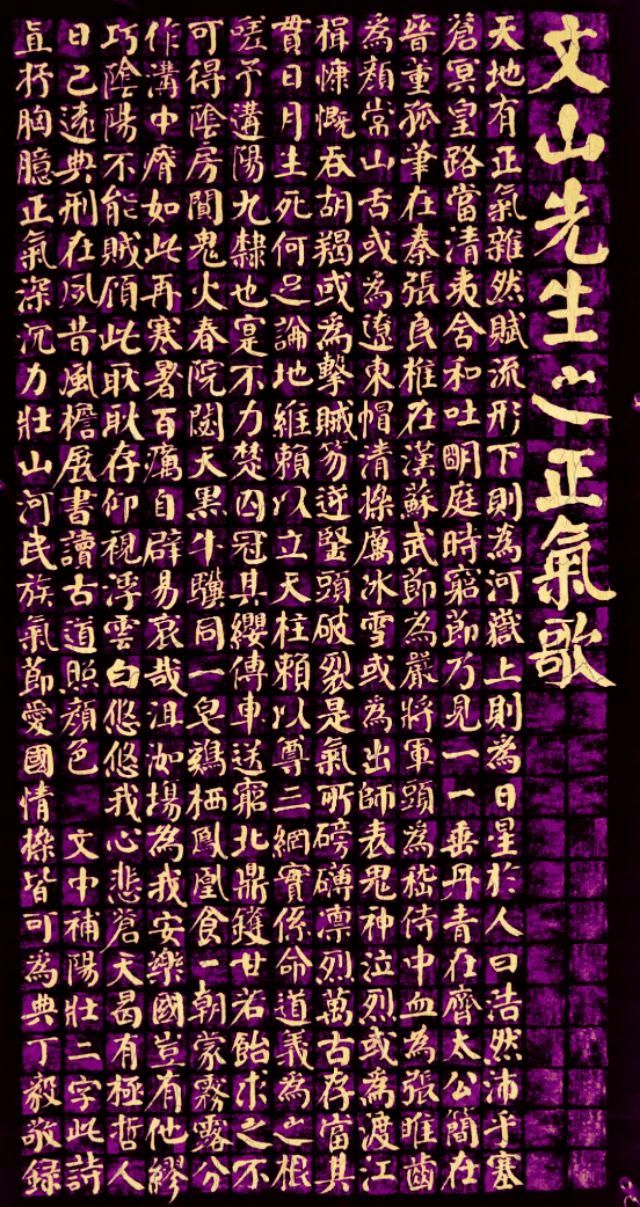 文山先生之正氣歌
天地有正氣雜然賦流形下則為河嶽上則為日星於人曰浩然沛乎塞
蒼冥皇路當清夷含和吐朙庭時窮節乃見一一垂丹青在齊太公簡在
晉董狐筆在秦張良椎在漢蘇武節為嚴將軍頭為嵇侍中血為張睢齒
為顏常山舌或為遼東帽清操厲冰雪或為出師表鬼神泣烈或為渡江
楫慷慨吞胡羯或為擊賊笏逆豎頭破裂是氣所磅礴凛烈萬古存當其
貫日月生死何足論地維賴以立天柱賴以尊三綱實係命道義為之根
嗟予遘陽九隸也寔不力楚囚冠其纓傳車送窮北鼎鑊甘若飴求之不
可得陰房闃鬼火春院閟天黑牛驥同一皂鷄栖鳳凰食一朝蒙霧露分
作溝中瘠如此再寒暑百癘自辟易哀哉沮洳場為我安樂國豈有他繆
巧陰陽不能賊顧此耿耿存仰視浮雲白悠悠我心悲蒼天曷有極哲人
日已遠典刑在夙昔風檐展書讀古道照顏色 文中補陽壯二字此詩
直抒胸臆正氣深沉力壯山河民族氣節愛國情操皆可為典丁毅敬録